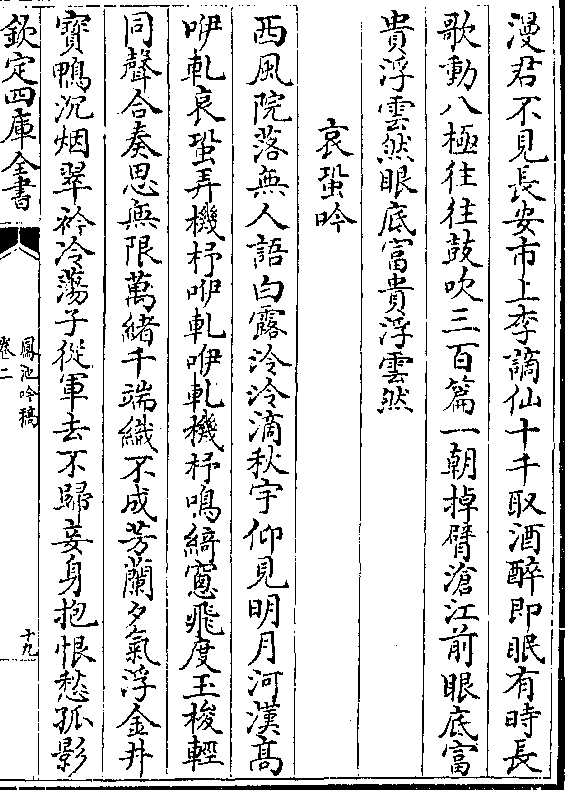 漫君不見長安市上李謫仙十千取酒醉即眠有時長
歌動八極往往鼓吹三百篇一朝掉臂滄江前眼底富
貴浮雲然眼底富貴浮雲然
哀蛩吟
西風院落無人語白露泠泠滴秋宇仰見明月河漢高
咿軋哀蛩弄機杼咿軋咿軋機杼鳴綺窻飛度玉梭輕
同聲合奏思無限萬緒千端織不成芳蘭夕氣浮金井
寳鴨沉烟翠衾冷蕩子從軍去不歸妾身抱恨愁孤影
欽定四庫全書
鳳池吟稿
卷二
十九